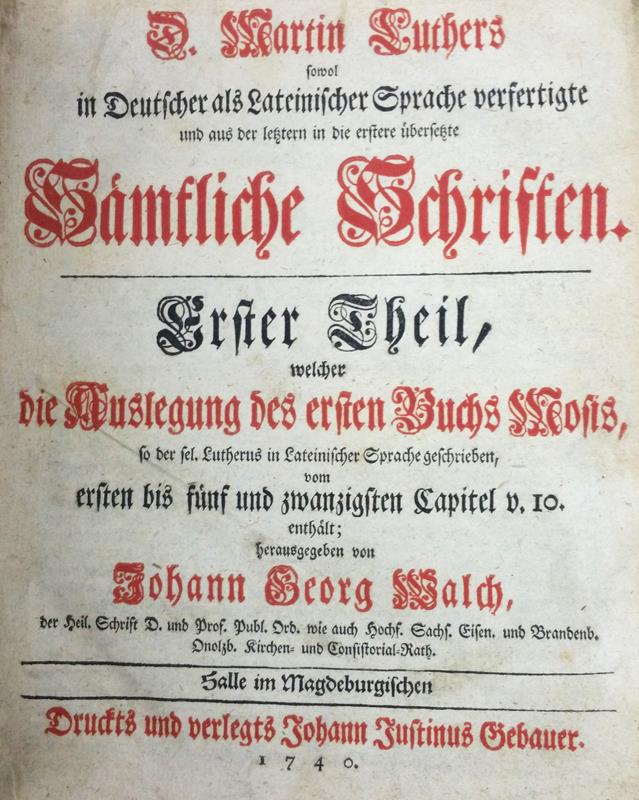 D. Martin Luthers
sowol
in Deutscher als Lateinischer Sprache verfertigte
und aus der letztern in die erstere übersetzte
Sämtliche Schriften.
Erster Theil,
welcher
die Auslegung des ersten Buchs Mosis,
so der sel. Lutherus in Lateinischer Sprache geschrieben,
vom
ersten bis fünf und zwanzigsten Capitel v. 10.
enthält;
herausgegeben von
Johann Georg Walch,
der Heil. Schrift D. und Prof. Publ. Ord. wie auch Hochf. Sachs. Eisen. und Brandenb.
Onolzb. Kirchen- und Consistorial-Rath.
Halle im Magdeburgischen
Druckts und verlegts Johann Justinus Gebauer.
1740.